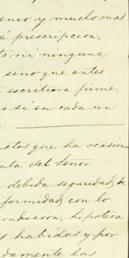 enor y muchomas
á prescripcion,
ni ninguna
sino que antes
escritura firme,
si en cada un
stos que ha ocasion
nta del Señor
debida seguridad, de
formidad con lo
ondicion, hipoteca
s habidas y por
damente las